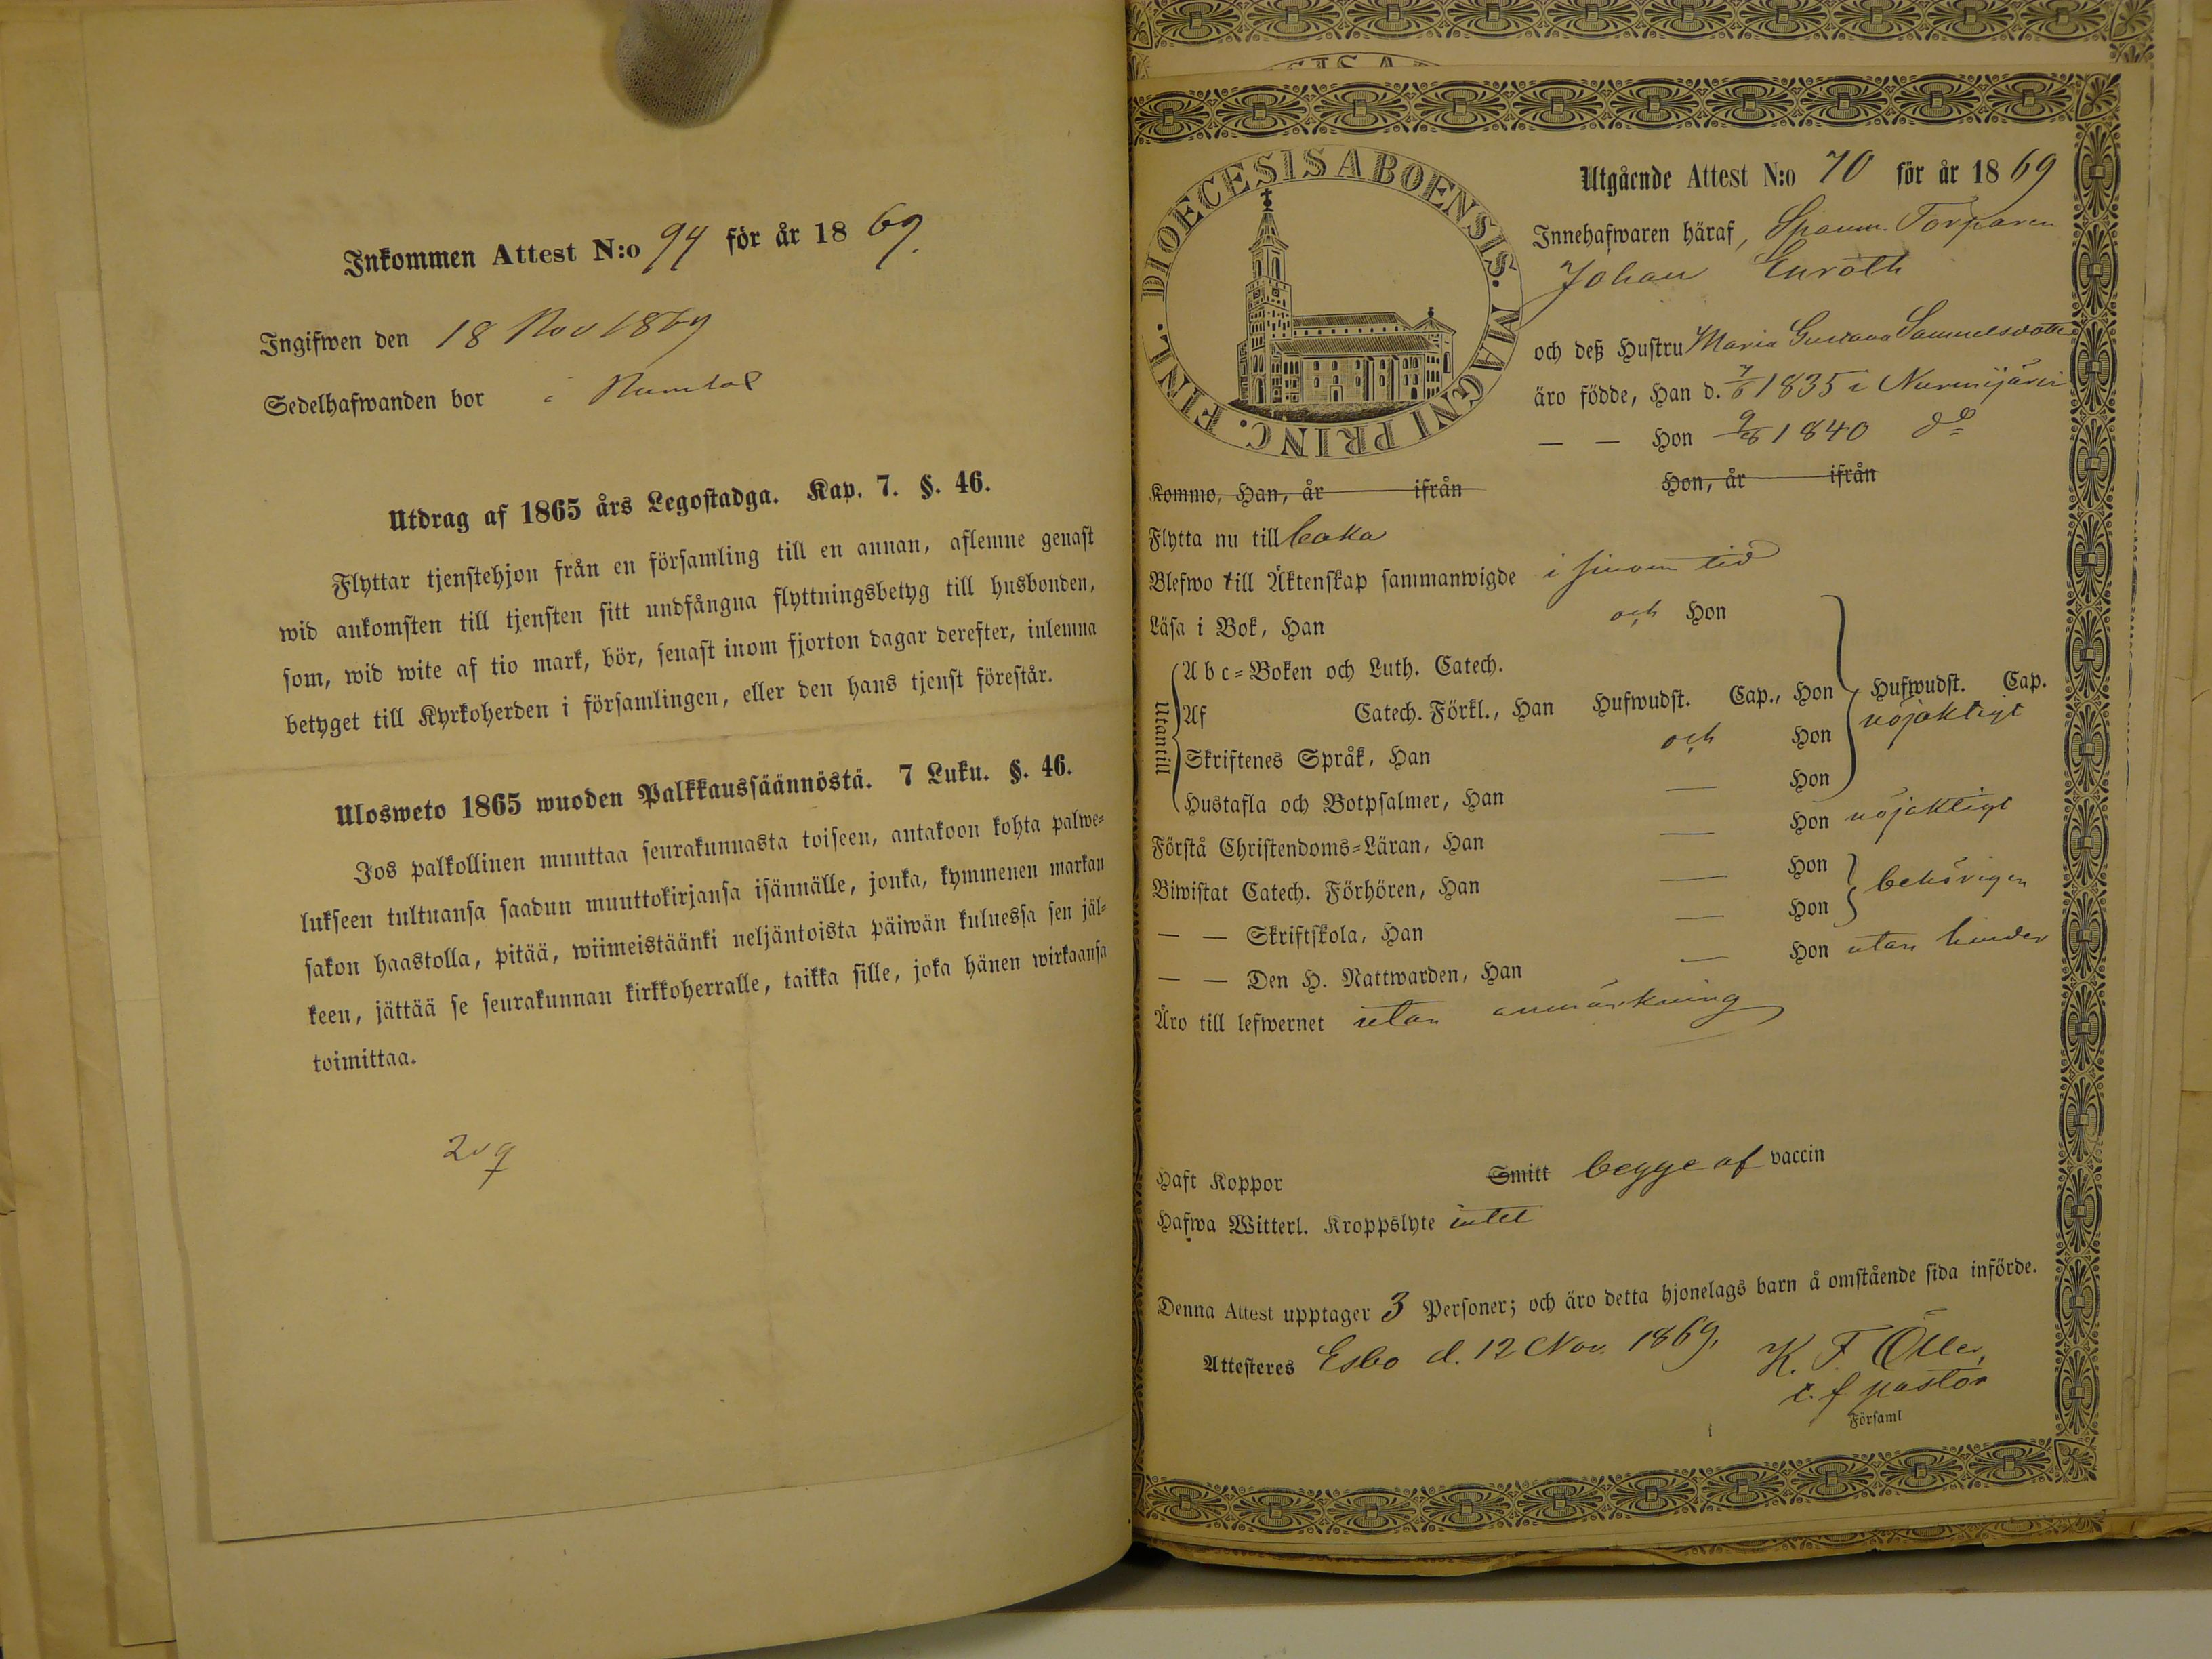 Inkommen Attest N:o 94 för år 1869.
Ingifwen den 18 Nov 1869
Sedelhafwanden bor i
Utdrag af 1865 års Legostadga. Kap. 7. §. 46.
Flyttar tjenstehjon från en församling till en annan, aflemne genast
wid ankomsten till tjensten sitt undfångna flyttningsbetyg till husbonden,
som, wid wite af tio mark, bör, senast inom fjorton dagar derefter, inlemna
betyget till Kyrkoherden i församlingen, eller den hans tjenst förestår.
Ulosweto 1865 wuoden Palkkaussäännöstä. 7 Luku. §. 46.
Jos palkollinen muuttaa seurakunnasta toiseen, antakoon kohta palwe-
lukseen tultuansa saadun muuttokirjansa isännälle, jonka, kymmenen markan
sakon haastolla, pitää, wiimeistäänki neljäntoista päiwän kuluessa sen jäl-
keen, jättää se seurakunnan kirkkoherralle, taikka sille, joka hänen wirkaansa
toimittaa.
DIOECESIS ABOENSIS. MAGNI PRINC. FINL.
Utgående Attest N:o 70 för år 1869
Innehafwaren häraf, Torparen
Johan Enroth
och deß Hustru Maria Gustava Samuelsdotter
äro födde, Han d. 7/6 1835 i Nurmijärvi
— — Hon 1840 do
Kommo, Han, år ifrån Hon, år ifrån
Flytta nu tillbaka
Blefwo till Äktenskap sammanwigde i sinom tid
Läsa i Bok, Han och Hon
Utantill
A b c-Boken och Luth. Catech.
Af Catech. Förkl., Han Hufwudst. Cap., Hon Hufwudst. Cap.
nöjaktigt
Skriftenes Språk, Han och Hon
Hustafla och Botpsalmer, Han — Hon
Förstå Christendoms-Läran, Han — Hon nöjaktigt
Biwistat Catech. Förhören, Han — Hon
behörigen
— — Skriftskola, Han — Hon
— — Den H. Nattwarden, Han — Hon utan hinder
Äro till lefwernet utan anmärkning
Haft Koppor Smitt begge af vaccin
Hafwa Witterl. Kroppslyte intet
Denna Attest upptager 3 Personer; och äro detta hjonelags barn å omstående sida införde.
Attesteres Esbo d. 12 Nov. 1869. K. F.
pastor
Församl